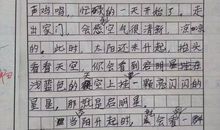 声鸡鸣，忙碌的一天开始了，走
出家门，你会感空气很清新，凉
的。此时，太阳还未升起，抬头
看看天空，你就会看到在
浅蓝色的天空上挂一颗亮闪闪的
星星，那就是启明星。
当太阳升起时，你会看一群